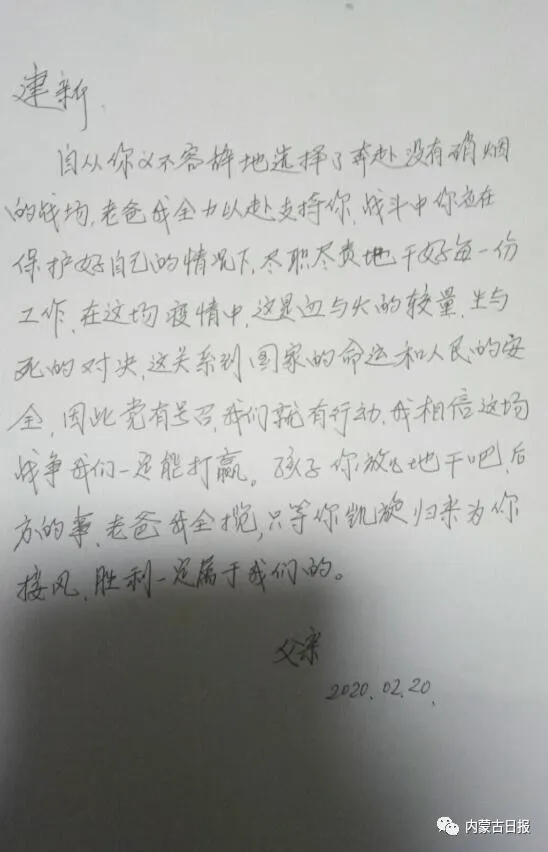 建新,
自从你义不容辞地选择了奔赴没有硝烟
的战场,老爸我全力以赴支持你,战斗中你应在
保护好自己的情况下,尽职尽责地干好每一份
工作,在这场疫情中,这是血与火的较量,生与
死的对决,这关系到国家的命运和人民的安
全,因此党有号召,我们就有行动,我相信这场
战争我们一定能打赢。孩子你放心地干吧,后
方的事,老爸我全揽,只等你凯旋归来为你
接风,胜利一定属于我们的。
父亲
2020.02.20.
内蒙古日报